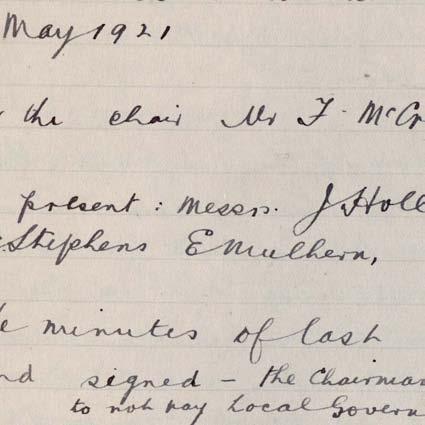 May 1921
the chair Mr F. McCr
present: Messrs. J Holl
Stephens E Mulhern,
minutes of last
nd signed - the Chairman
to not pay Local Govern